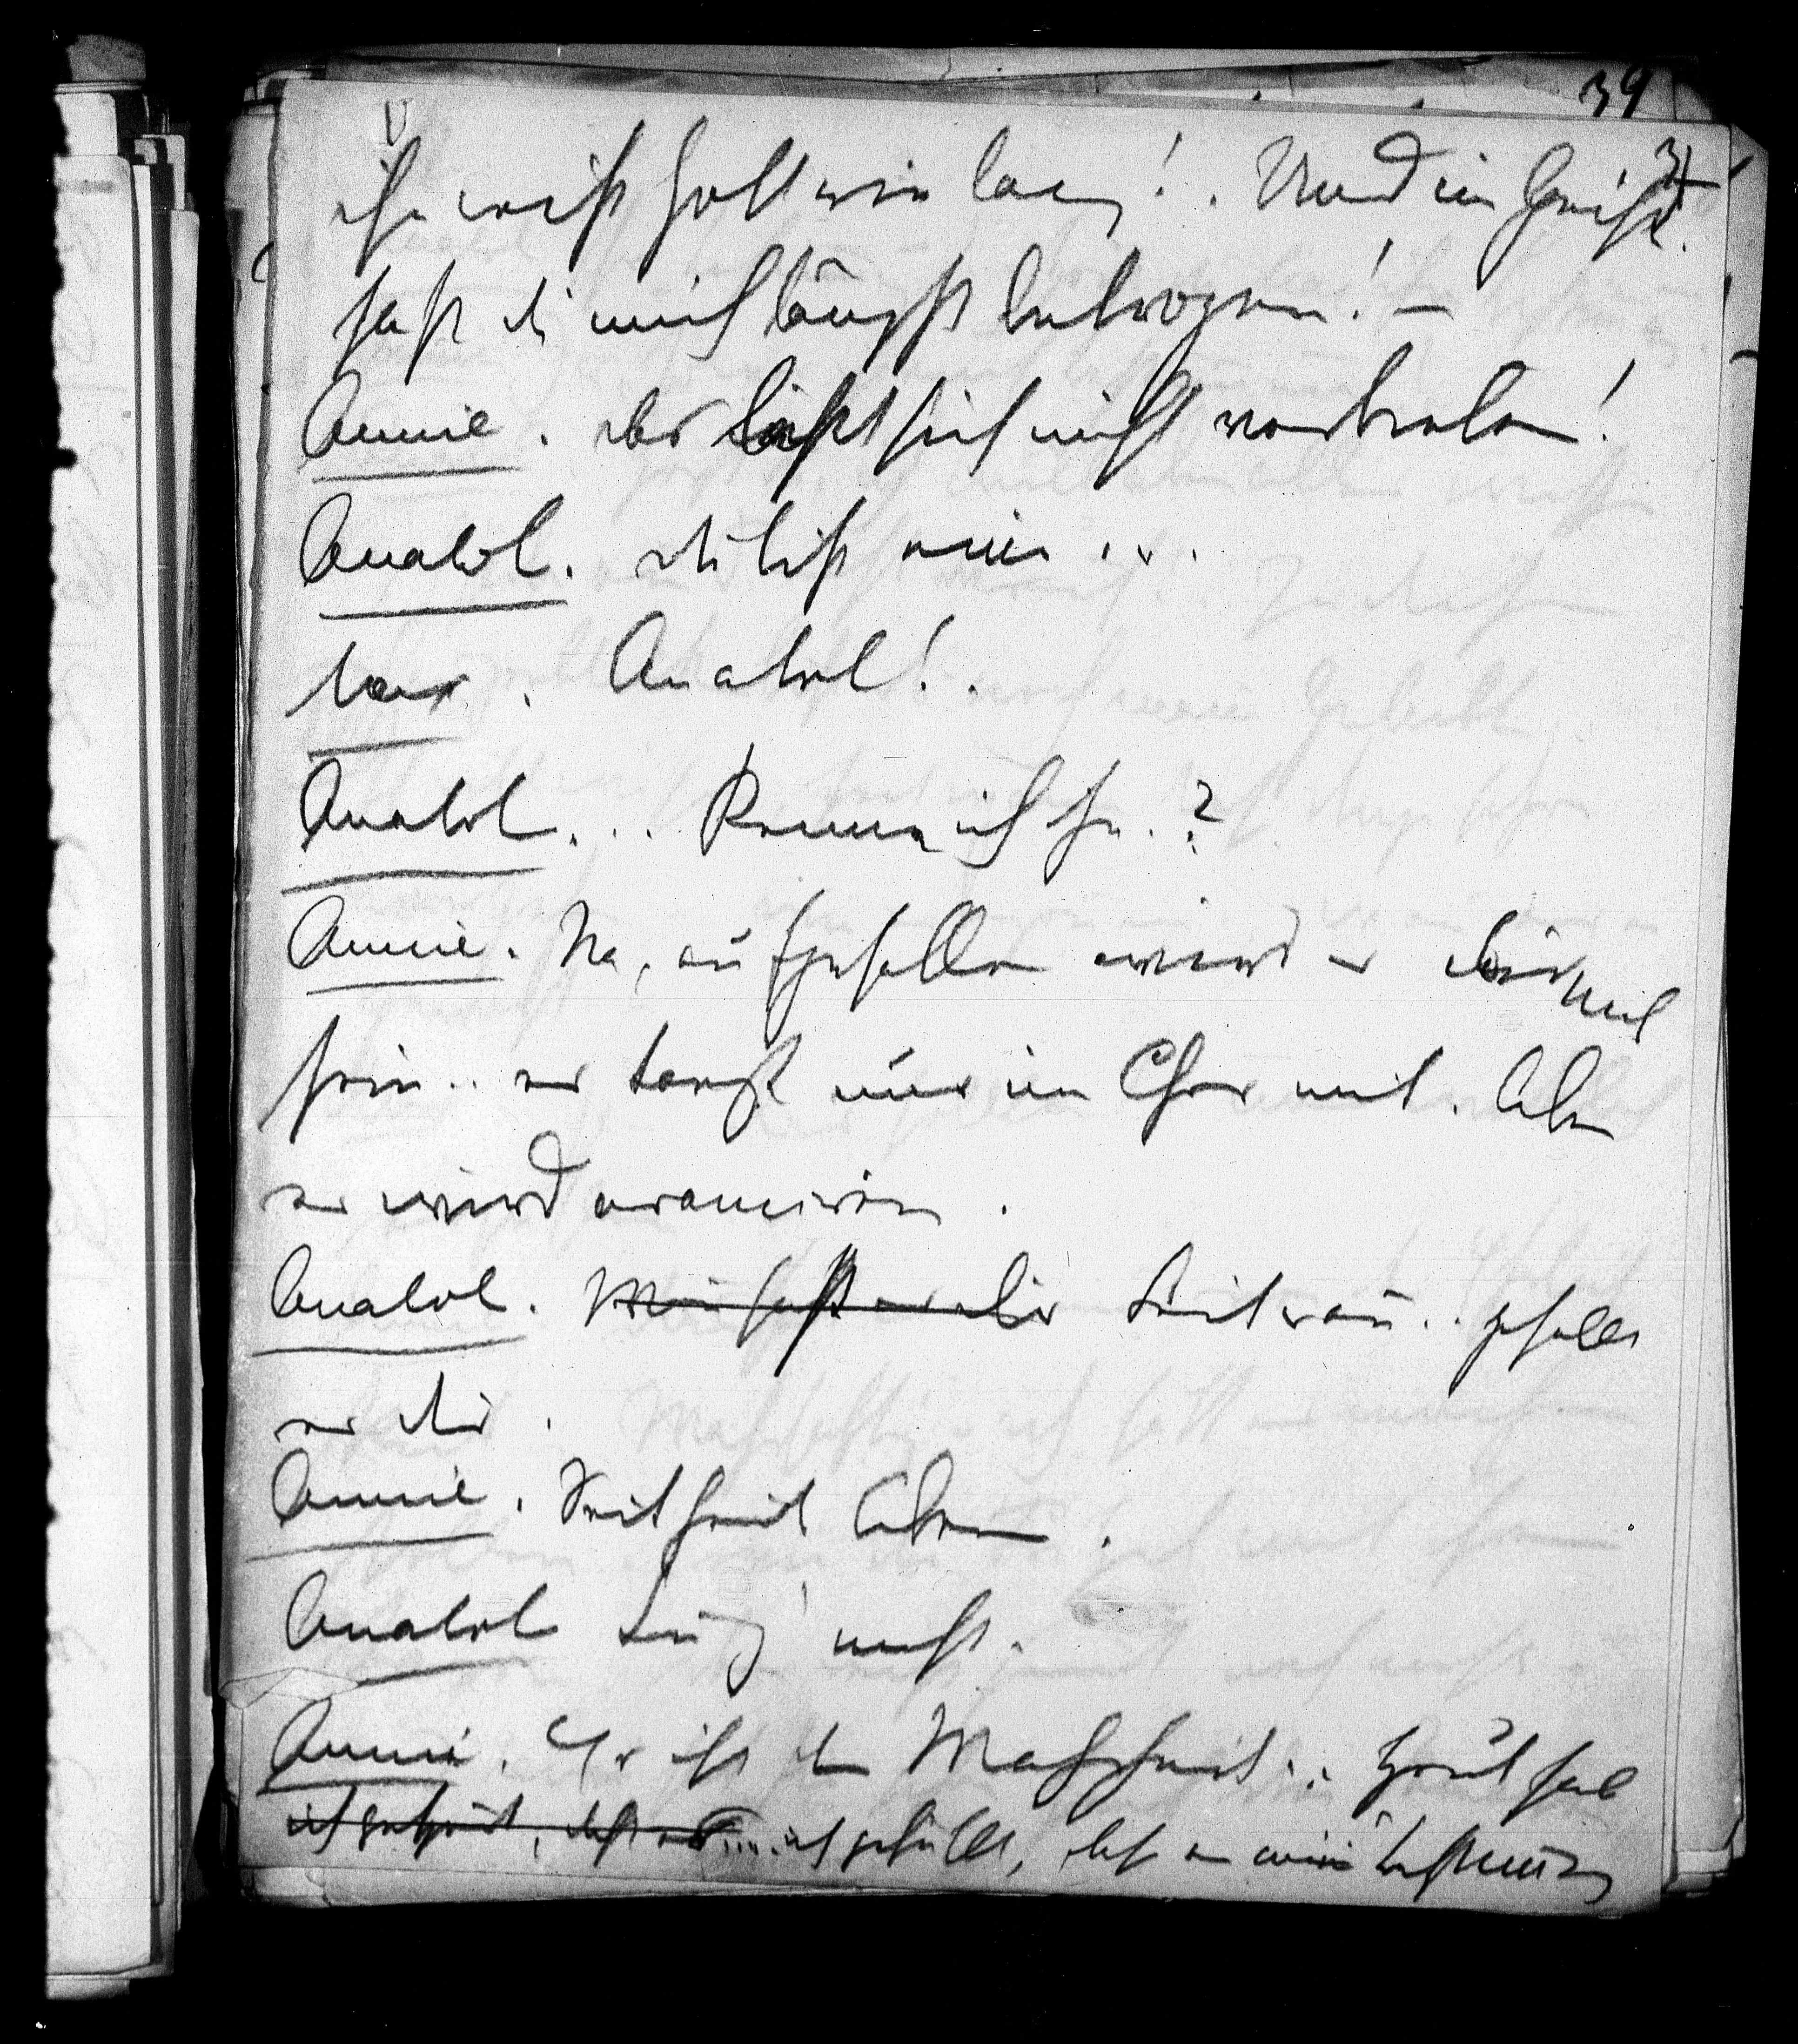 39
31
ihn weiß Gott wie lang! . Und im Geiste
hast du mich längst betrogen! –
Annie. das läßt sich nicht verbieten!
Anatol. du bist eine ...
Max. Anatol!.
Anatol... Kenne ich ihn.?
Annie. Na, aufgefallen wird er dir nicht
sein.. er tanzt nur im Chor mit. Aber
er wird avanciren.
Anatol. Seit wann.. gefällt
er dir.
Annie. Seit heut Abend.
Anatol Lüg nicht.
Annie. Es ist die Wahrheit.. Heut hab
ich gefühlt, daß er meine Bestimmung